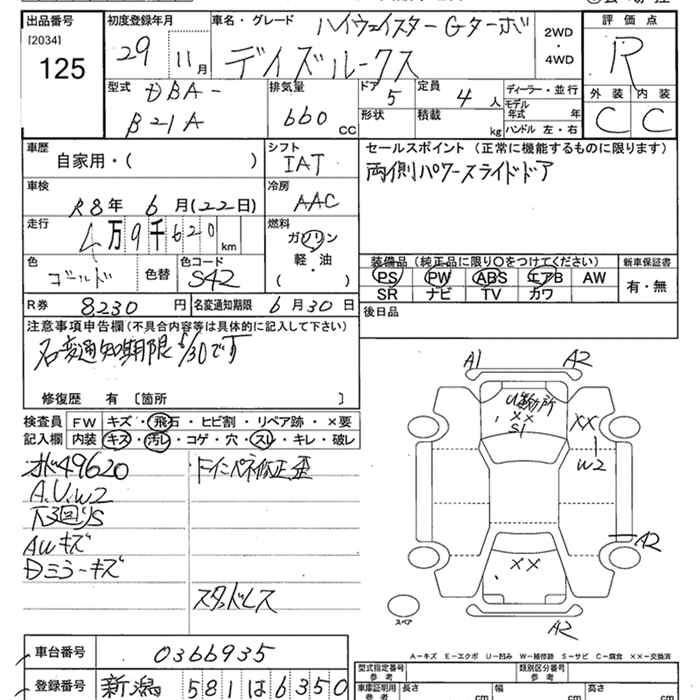 出品番号 初度登録年月 車名・グレード ハイウェイスターGターボ 評価点
[2034] 125 29 11月 デイズルークス 2WD・4WD R
型式 DBA-B21A 排気量 660cc ドア 5 定員 4人 ディーラー・並行 外装 内装
形状 積載 kg モデル年式 年 ハンドル 左・右 C C
車歴 自家用・( ) シフト IAT セールスポイント(正常に機能するものに限ります)
両側パワースライドドア
車検 R8年 6月(22日) 冷房 AAC
走行 4万9千620km 燃料 ガソリン 軽・油 ( )
装備品(純正品に限り〇をつけてください) 新車保証書
色 ゴールド 色替 色コード S42 PS PW ABS エアB AW 有・無
SR ナビ TV カワ
R券 8230円 名変通知期限 6月30日 後日品
注意事項申告欄(不具合内容等は具体的に記入して下さい)
名変通知期限6/30です
修復歴 有〔箇所 〕
検査員記入欄 FW キズ・飛石・ヒビ割・リペア跡・×要
内装 キズ・汚レ・コゲ・穴・スレ・キレ・破レ
49620
A.U.W2
下回りS
AWキズ
Dミラーキズ
スタッドレス
A1 A2
××
S1
××
W2
A2
××
A2
スペア
A-キズ E-エクボ U-凹み W-補修跡 S-サビ C-腐食 ××-交換済
車台番号 0366935
型式指定番号 参考 類別区分番号 参考
登録番号 新潟 581 は 6350
車庫証明用 参考 長さ cm 幅 cm 高さ cm